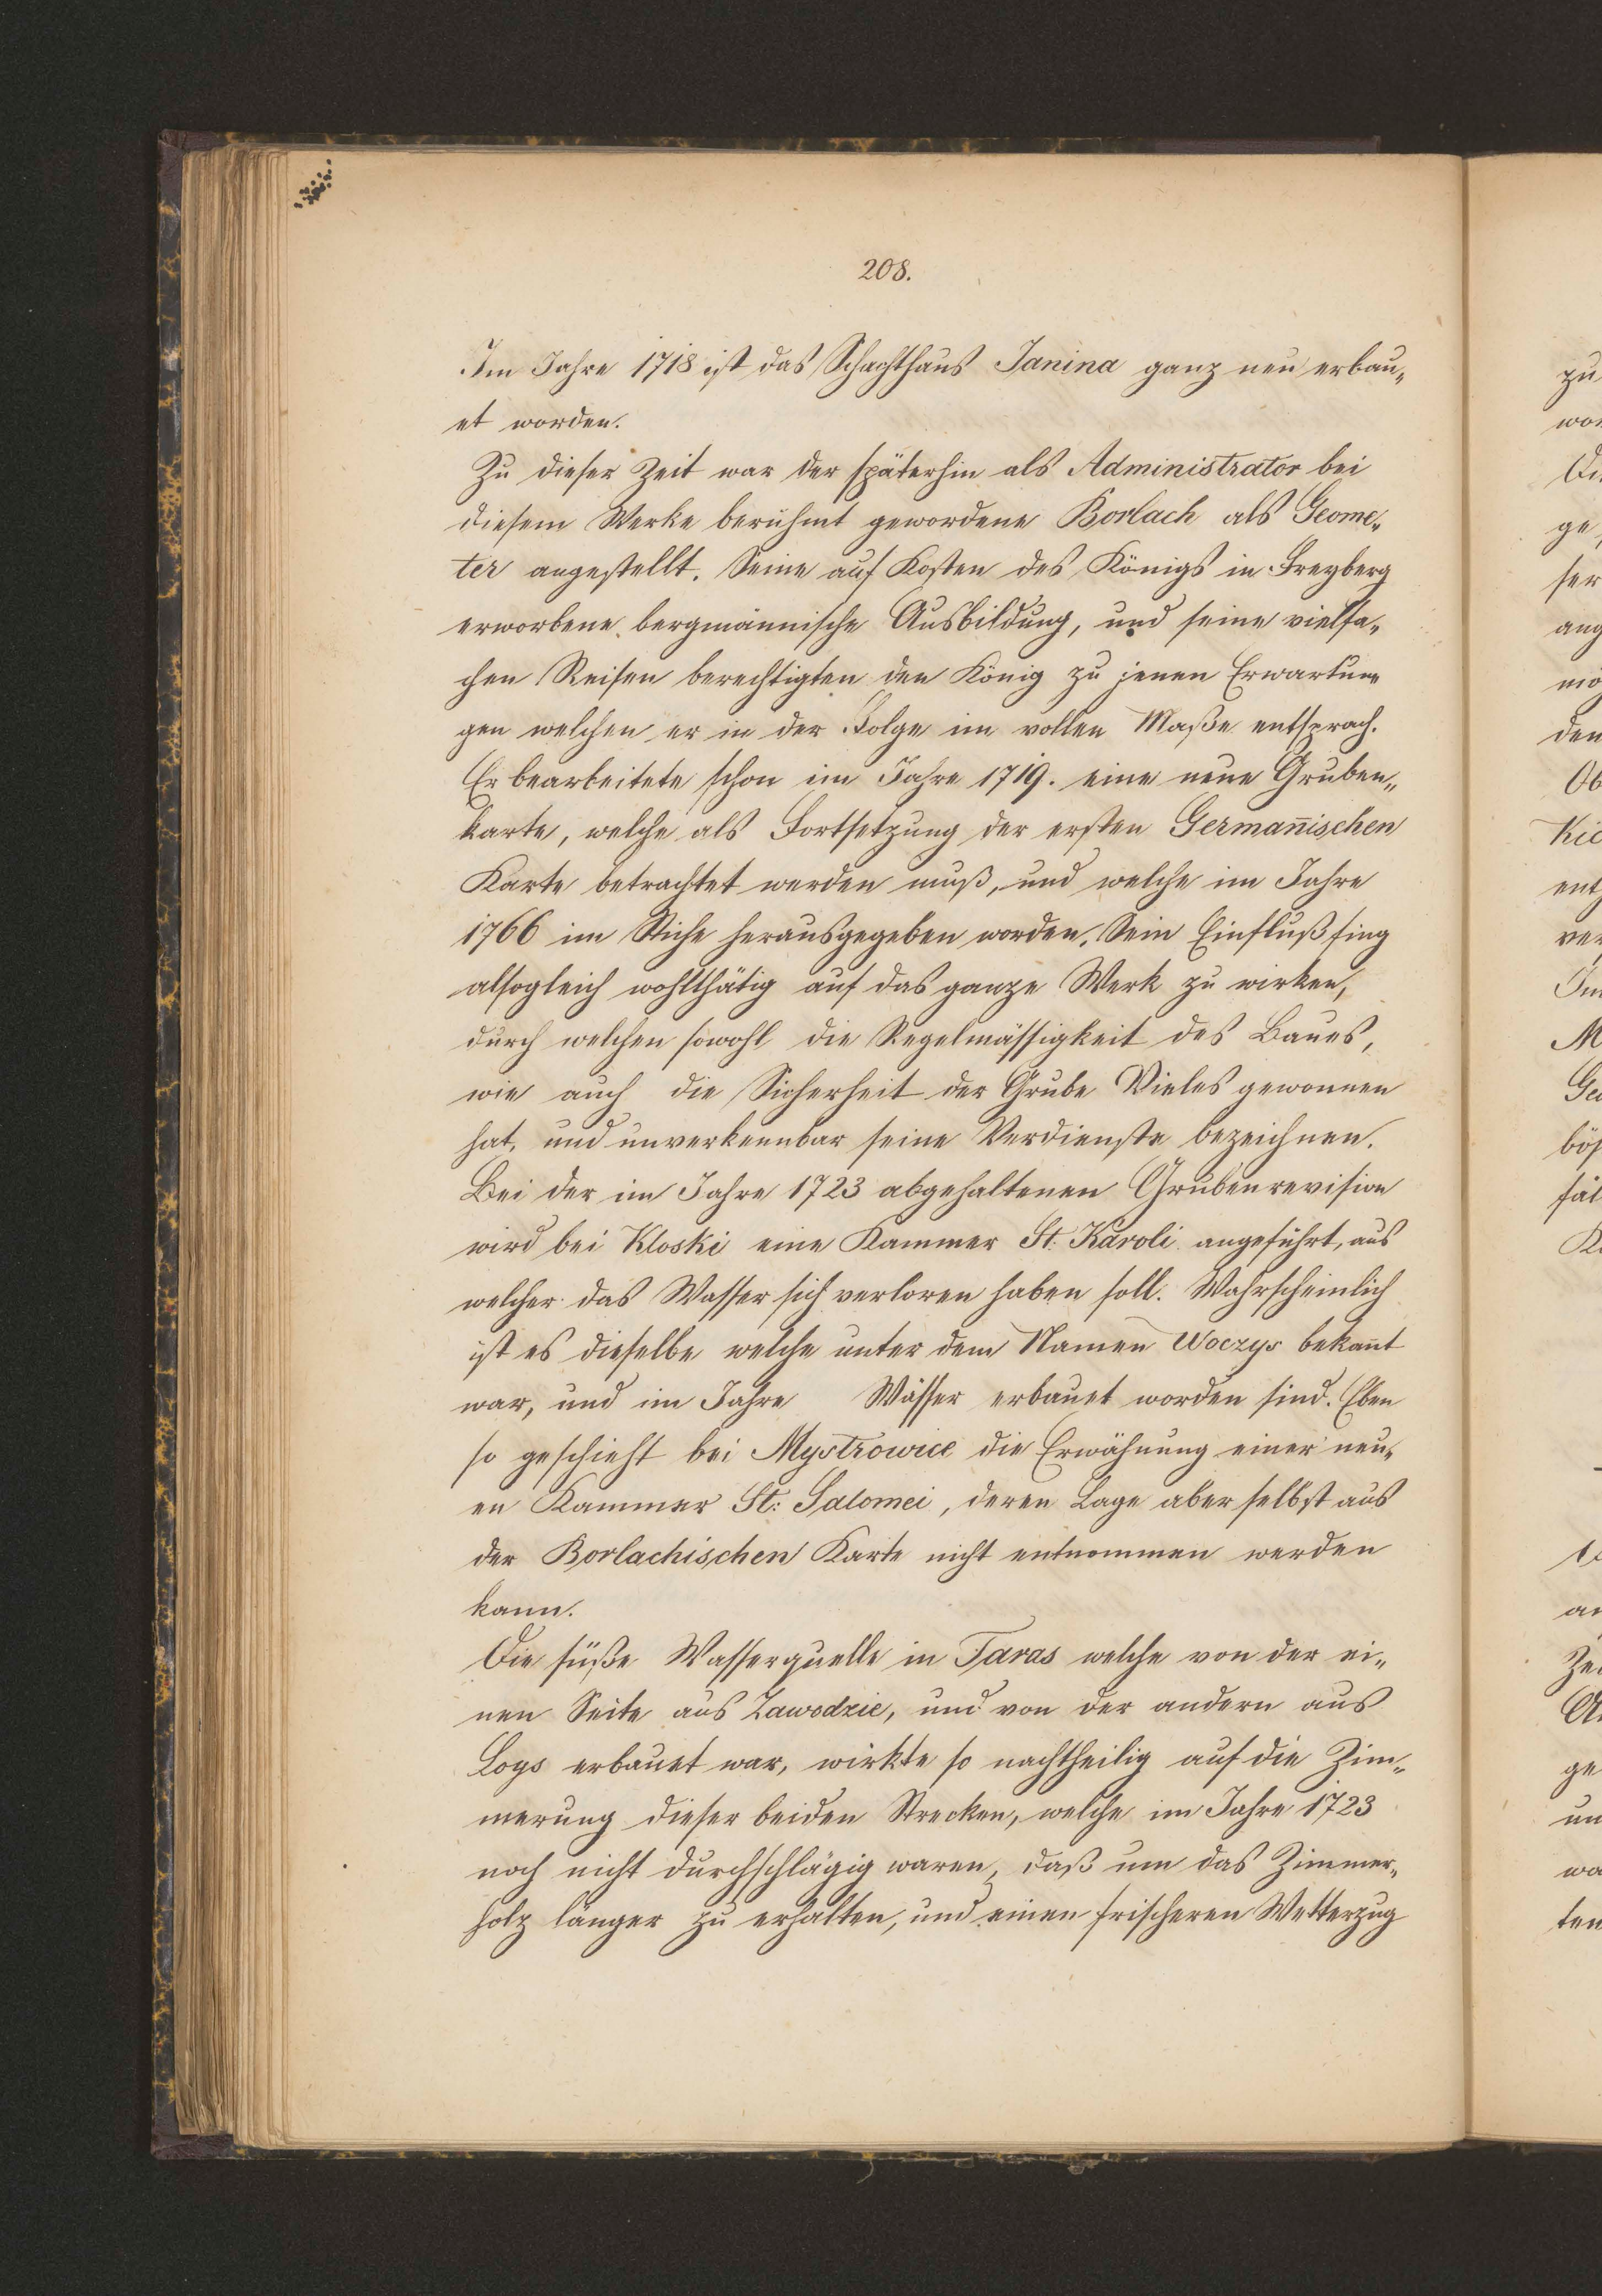 208.
Im Jahre 1718 ist das Schachthaus Janina ganz neu erbau„
et worden.
Zu dieser Zeit war der späterhin als Administrator bei
diesem Werke berühmt gewordene Borlach als Geome„
ter angestellt. Seine auf Kosten des Königs in Freyberg
erworbene bergmännische Ausbildung, und seine vielfa„
chen Reisen berechtigten den König zu jenen Erwartun„
gen welchen er in der Folge im vollen Maße entsprach.
Er bearbeitete schon im Jahre 1719. eine neue Gruben„
karte, welche als Fortsetzung der ersten Germanischen
Karte betrachtet werden muß, und welche im Jahre
1766 im Stiche herausgegeben worden. Sein Einfluß fing
alsogleich wohlthätig auf das ganze Werk zu wirken,
durch welchen sowohl die Regelmässigkeit des Baues,
wie auch die Sicherheit der Grube Vieles gewonnen
hat, und unverkennbar seine Verdienste bezeichnen.
Bei der im Jahre 1723 abgehaltenen Grubenrevision
wird bei Kloski eine Kammer St. Karoli angeführt, aus
welcher das Wasser sich verloren haben soll. Wahrscheinlich
ist es dieselbe welche unter dem Namen Woczys bekañt
war, und im Jahre Wässer erbauet worden sind. Eben
so geschieht bei Mystrowice die Erwähnung einer neu„
en Kammer St: Salomei, deren Lage aber selbst aus
der Borlachischen Karte nicht entnommen werden
kann.
Die süße Wasserquelle in Taras welche von der ei„
nen Seite aus Zawodzie, und von der andern aus
Loys erbauet war, wirkte so nachtheilig auf die Zim„
merung dieser beiden Strecken, welche im Jahre 1723
noch nicht durchschlägig waren, daß um das Zimmer„
holz länger zu erhalten, und einen frischeren Wetterzug